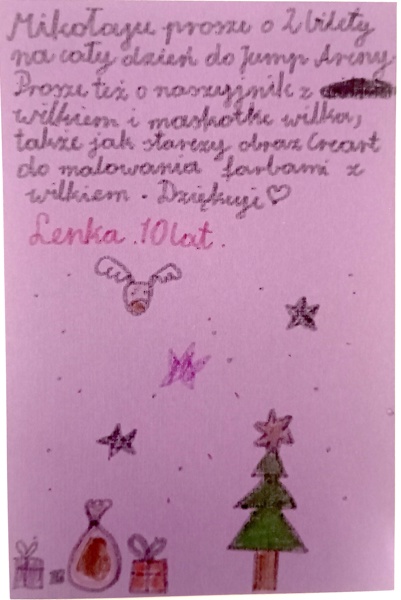 Mikołaju prosze o 2 bilety
na cały dzień do Jump Areny
Prosze też o naszyjnik z
wilkiem i maskotke wilka,
także jak starczy obraz Creart
do malowania farbami z
wilkiem. Dziękuję ♡
Lenka 10 lat.